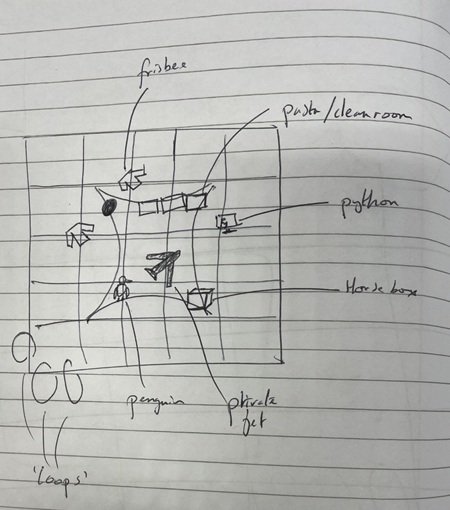 frisbee
pasta/cleanroom
python
Horse box
penguin
private
jet
'loops'